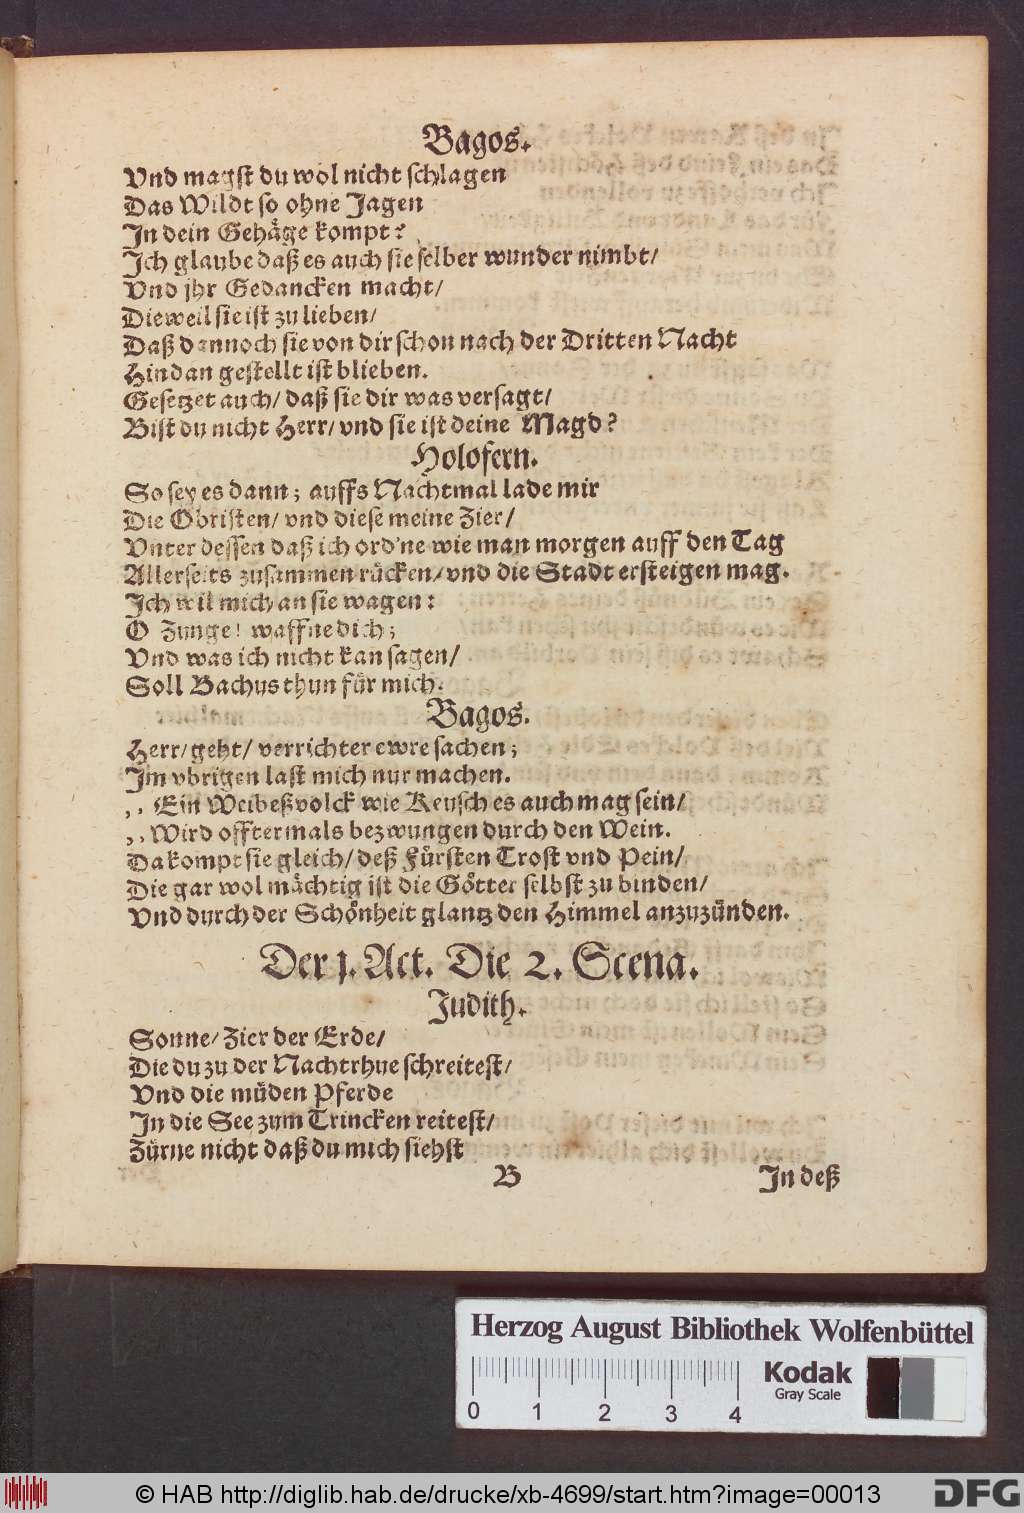 Bagos.
Vnd magst du wol nicht schlagen
Das Wildt so ohne Jagen
In dein Gehäge kompt?
Ich glaube daß es auch sie selber wunder nimbt/
Vnd jhr Gedancken macht/
Dieweil sie ist zu lieben/
Daß dannoch sie von dir schon nach der Dritten Nacht
Hindan gestellt ist blieben.
Gesetzet auch/ daß sie dir was versagt/
Bist du nicht Herr/ vnd sie ist deine Magd?
Holofern.
So sey es dann; auffs Nachtmal lade mir
Die Obristen/ vnd diese meine Zier/
Vnter dessen daß ich ord'ne wie man morgen auff den Tag
Allerseits zusammen rücken/ vnd die Stadt ersteigen mag.
Ich wil mich an sie wagen:
O Zunge! waffne dich;
Vnd was ich nicht kan sagen/
Soll Bachus thun für mich.
Bagos.
Herr/ geht/ verrichter ewre sachen;
Im vbrigen last mich nur machen.
,, Ein Weibeßvolck wie Keusch es auch mag sein/
,, Wird offtermals bezwungen durch den Wein.
Da kompt sie gleich/ deß Fürsten Trost vnd Pein/
Die gar wol mächtig ist die Götter selbst zu binden/
Vnd durch der Schönheit glantz den Himmel anzuzünden.
Der 1. Act. Die 2. Scena.
Judith.
Sonne/ Zier der Erde/
Die du zu der Nachtrhue schreitest/
Vnd die müden Pferde
In die See zum Trincken reitest/
Zürne nicht daß du mich siehst
B In deß
Herzog August Bibliothek Wolfenbüttel
0 1 2 3 4
Kodak
Gray Scale
© HAB http://diglib.hab.de/drucke/xb-4699/start.htm?image=00013
DFG